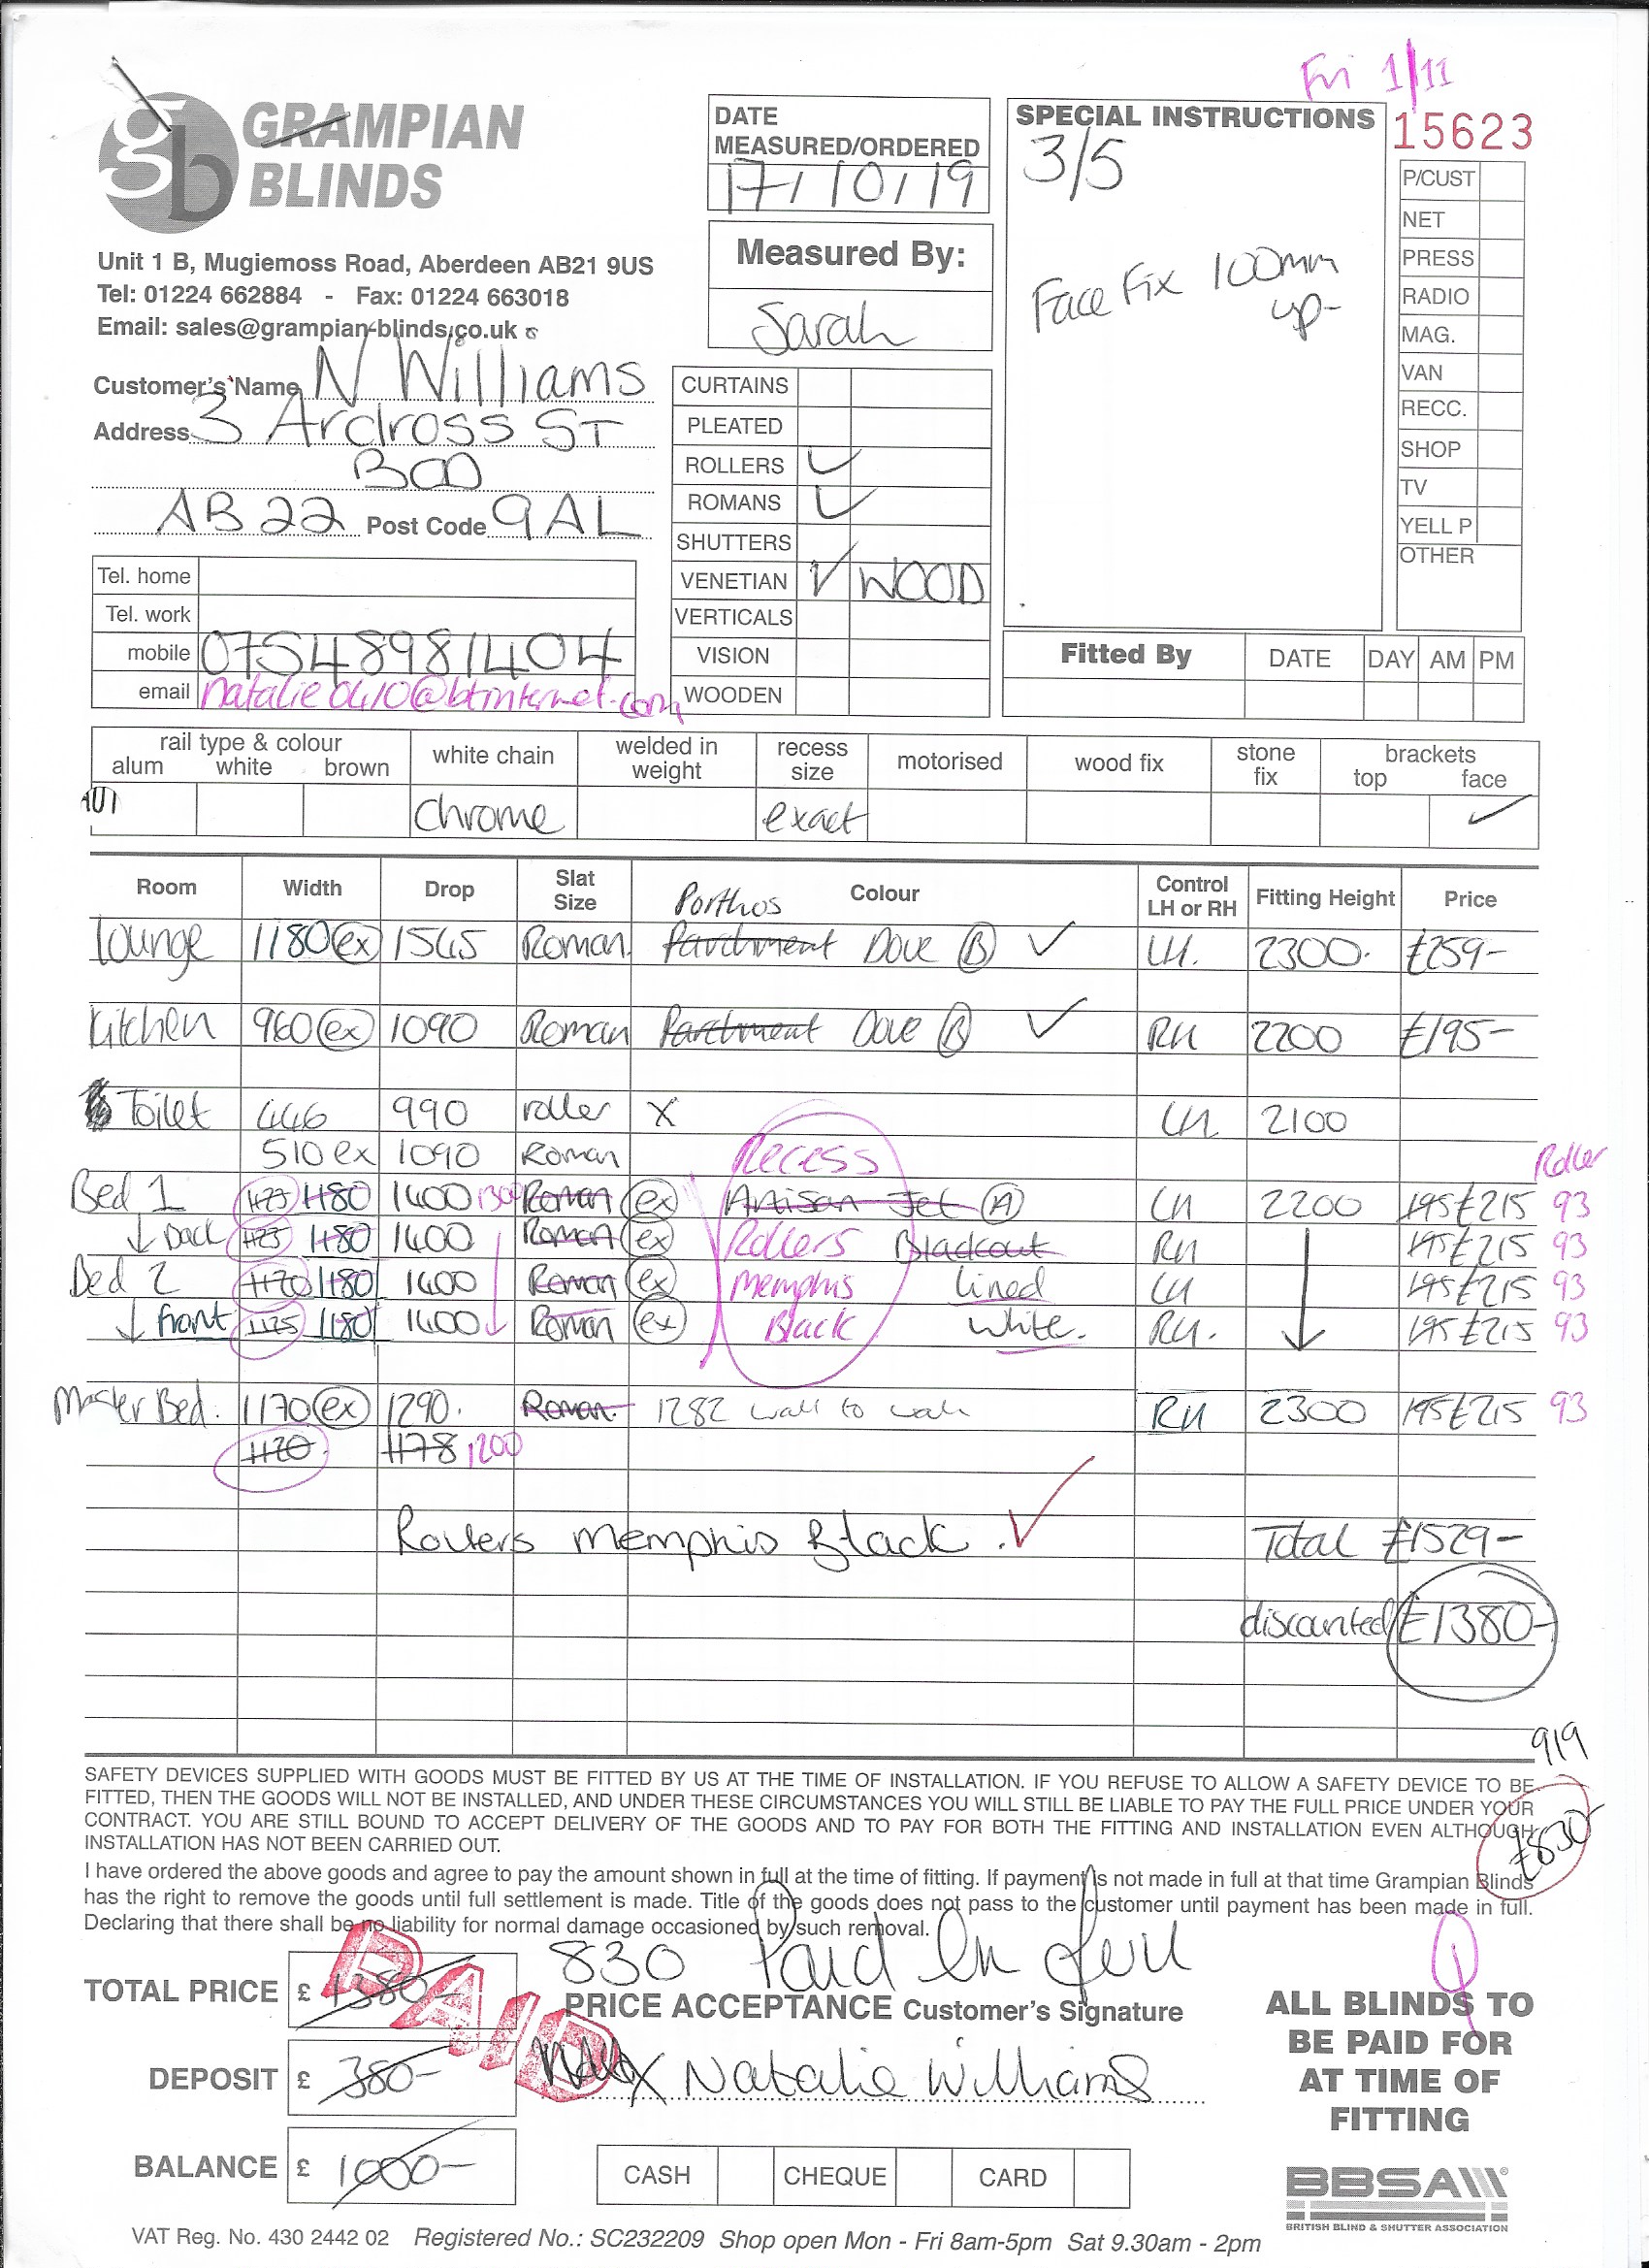 Fri 1/11
GRAMPIAN
BLINDS
gb
Unit 1 B, Mugiemoss Road, Aberdeen AB21 9US
Tel: 01224 662884 - Fax: 01224 663018
Email: sales@grampian-blinds.co.uk
DATE
MEASURED/ORDERED
17/10/19
Measured By:
Sarah
SPECIAL INSTRUCTIONS
3/5
Face Fix 100mm
up-
15623
P/CUST
NET
PRESS
RADIO
MAG.
VAN
RECC.
SHOP
TV
YELL P
OTHER
Customer's Name N Williams
Address 3 Ardross ST
BOD
AB22 Post Code 9AL
Tel. home
Tel. work
mobile 07548981404
email natalie0410@btinternet.com
CURTAINS
PLEATED
ROLLERS ✓
ROMANS ✓
SHUTTERS
VENETIAN ✓ WOOD
VERTICALS
VISION
WOODEN
Fitted By DATE DAY AM PM
rail type & colour
alum white brown
white chain
welded in weight
recess size
motorised
wood fix
stone fix
brackets
top face
chrome exact ✓
Room Width Drop Slat Size Colour Control LH or RH Fitting Height Price
Porthos
Lounge 1180 ex 1545 Roman Parchment Dove B ✓ LH. 2300. £259-
Kitchen 960 ex 1090 Roman Parchment Dove B ✓ RH 2200 £195-
Toilet 446 990 roller X LH 2100
510 ex 1090 Roman Recess Roller
Bed 1 1125 1180 1400 1300 Roman ex Artisan Jet A LH 2200 195 £215 93
↓ Back 1125 1180 1400 Roman ex Rollers Blackout RH 195 £215 93
Bed 2 1120 1180 1400 Roman ex Memphis Lined LH 195 £215 93
↓ front 1125 1180 1400 Roman ex Black White. RH. 195 £215 93
Master Bed. 1170 ex 1290. Roman. 1282 wall to wall RH 2300 195 £215 93
1120. 1178 1200
Rollers Memphis Black. ✓ Total £1529-
discounted £1380-
919
SAFETY DEVICES SUPPLIED WITH GOODS MUST BE FITTED BY US AT THE TIME OF INSTALLATION. IF YOU REFUSE TO ALLOW A SAFETY DEVICE TO BE
FITTED, THEN THE GOODS WILL NOT BE INSTALLED, AND UNDER THESE CIRCUMSTANCES YOU WILL STILL BE LIABLE TO PAY THE FULL PRICE UNDER YOUR
CONTRACT. YOU ARE STILL BOUND TO ACCEPT DELIVERY OF THE GOODS AND TO PAY FOR BOTH THE FITTING AND INSTALLATION EVEN ALTHOUGH
INSTALLATION HAS NOT BEEN CARRIED OUT.
£830-
I have ordered the above goods and agree to pay the amount shown in full at the time of fitting. If payment is not made in full at that time Grampian Blinds
has the right to remove the goods until full settlement is made. Title of the goods does not pass to the customer until payment has been made in full.
Declaring that there shall be no liability for normal damage occasioned by such removal.
830 Paid In full
TOTAL PRICE £ 1380-
PAID
PRICE ACCEPTANCE Customer's Signature
DEPOSIT £ 380-
X Natalie Williams
BALANCE £ 1000-
CASH CHEQUE CARD
ALL BLINDS TO
BE PAID FOR
AT TIME OF
FITTING
BBSA
BRITISH BLIND & SHUTTER ASSOCIATION
VAT Reg. No. 430 2442 02 Registered No.: SC232209 Shop open Mon - Fri 8am-5pm Sat 9.30am - 2pm